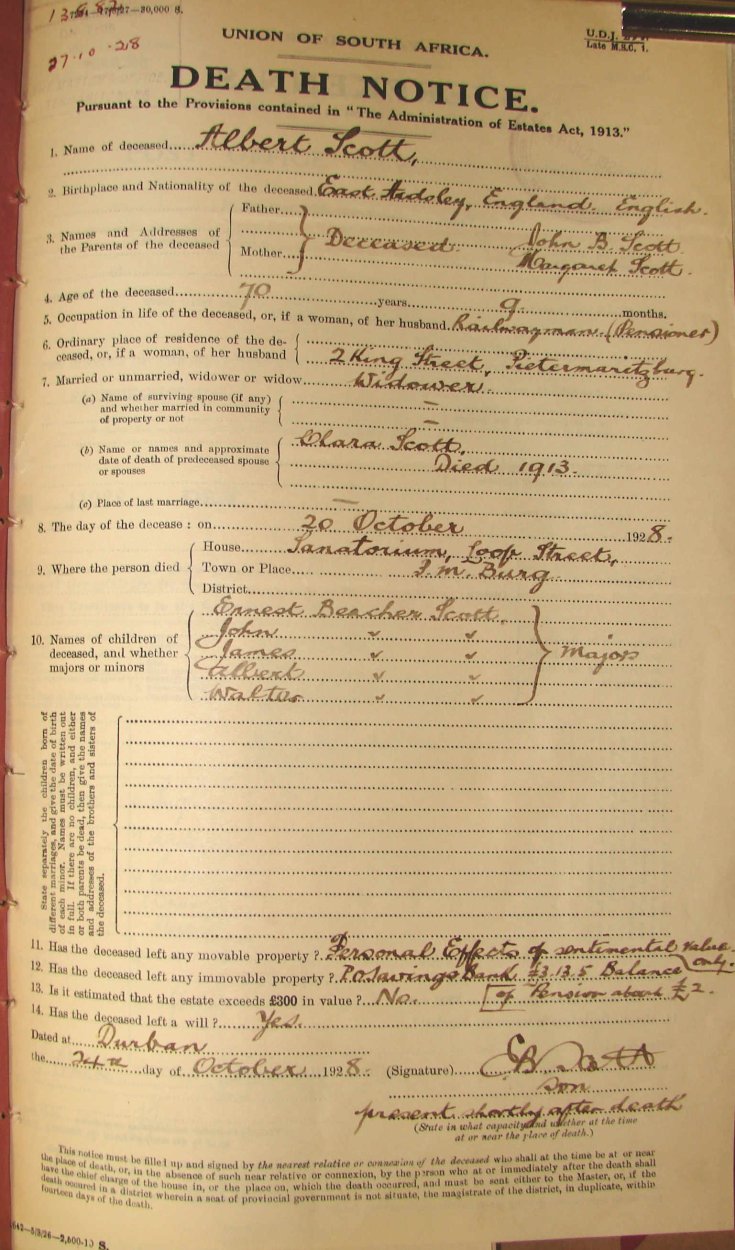 27·10·28
UNION OF SOUTH AFRICA.
U.D.J.
Late M.S.C. 1.
DEATH NOTICE.
Pursuant to the Provisions contained in "The Administration of Estates Act, 1913."
1. Name of deceased Albert Scott,
2. Birthplace and Nationality of the deceased East Ardsley, England. English.
3. Names and Addresses of the Parents of the deceased
Father
Mother
Deceased John B. Scott
Margaret Scott.
4. Age of the deceased 70 years 9 months.
5. Occupation in life of the deceased, or, if a woman, of her husband Railwayman (Pensioner)
6. Ordinary place of residence of the de-
ceased, or, if a woman, of her husband 2 King Street, Pietermaritzburg.
7. Married or unmarried, widower or widow Widower.
(a) Name of surviving spouse (if any)
and whether married in community
of property or not
(b) Name or names and approximate
date of death of predeceased spouse
or spouses
Clara Scott,
Died 1913.
(c) Place of last marriage
8. The day of the decease : on 20 October 1928.
9. Where the person died
House Sanatorium, Loop Street,
Town or Place P.M. Burg
District
10. Names of children of
deceased, and whether
majors or minors
Ernest Beecher Scott
John " "
James " "
Albert " "
Walter " "
Majors
State separately the children born of
different marriages, and give the date of birth
of each minor. Names must be written out
in full. If there are no children, and either
or both parents be dead, then give the names
and addresses of the brothers and sisters of
the deceased.
11. Has the deceased left any movable property ? Personal Effects of sentimental value only.
12. Has the deceased left any immovable property ? P.O. Savings Bank £3.13.5 Balance
of Pension about £2.
13. Is it estimated that the estate exceeds £300 in value ? No.
14. Has the deceased left a will ? Yes.
Dated at Durban
the 24th day of October 1928.
(Signature)
son
present shortly after death
(State in what capacity and whether at the time
at or near the place of death.)
This notice must be filled up and signed by the nearest relative or connexion of the deceased who shall at the time be at or near
the place of death, or, in the absence of such near relative or connexion, by the person who at or immediately after the death shall
have the chief charge of the house in, or the place on, which the death occurred, and must be sent either to the Master, or, if the
death occured in a district wherein a seat of provincial government is not situate, the magistrate of the district, in duplicate, within
fourteen days of the death.
642—5/3/26—2,500-10 S.